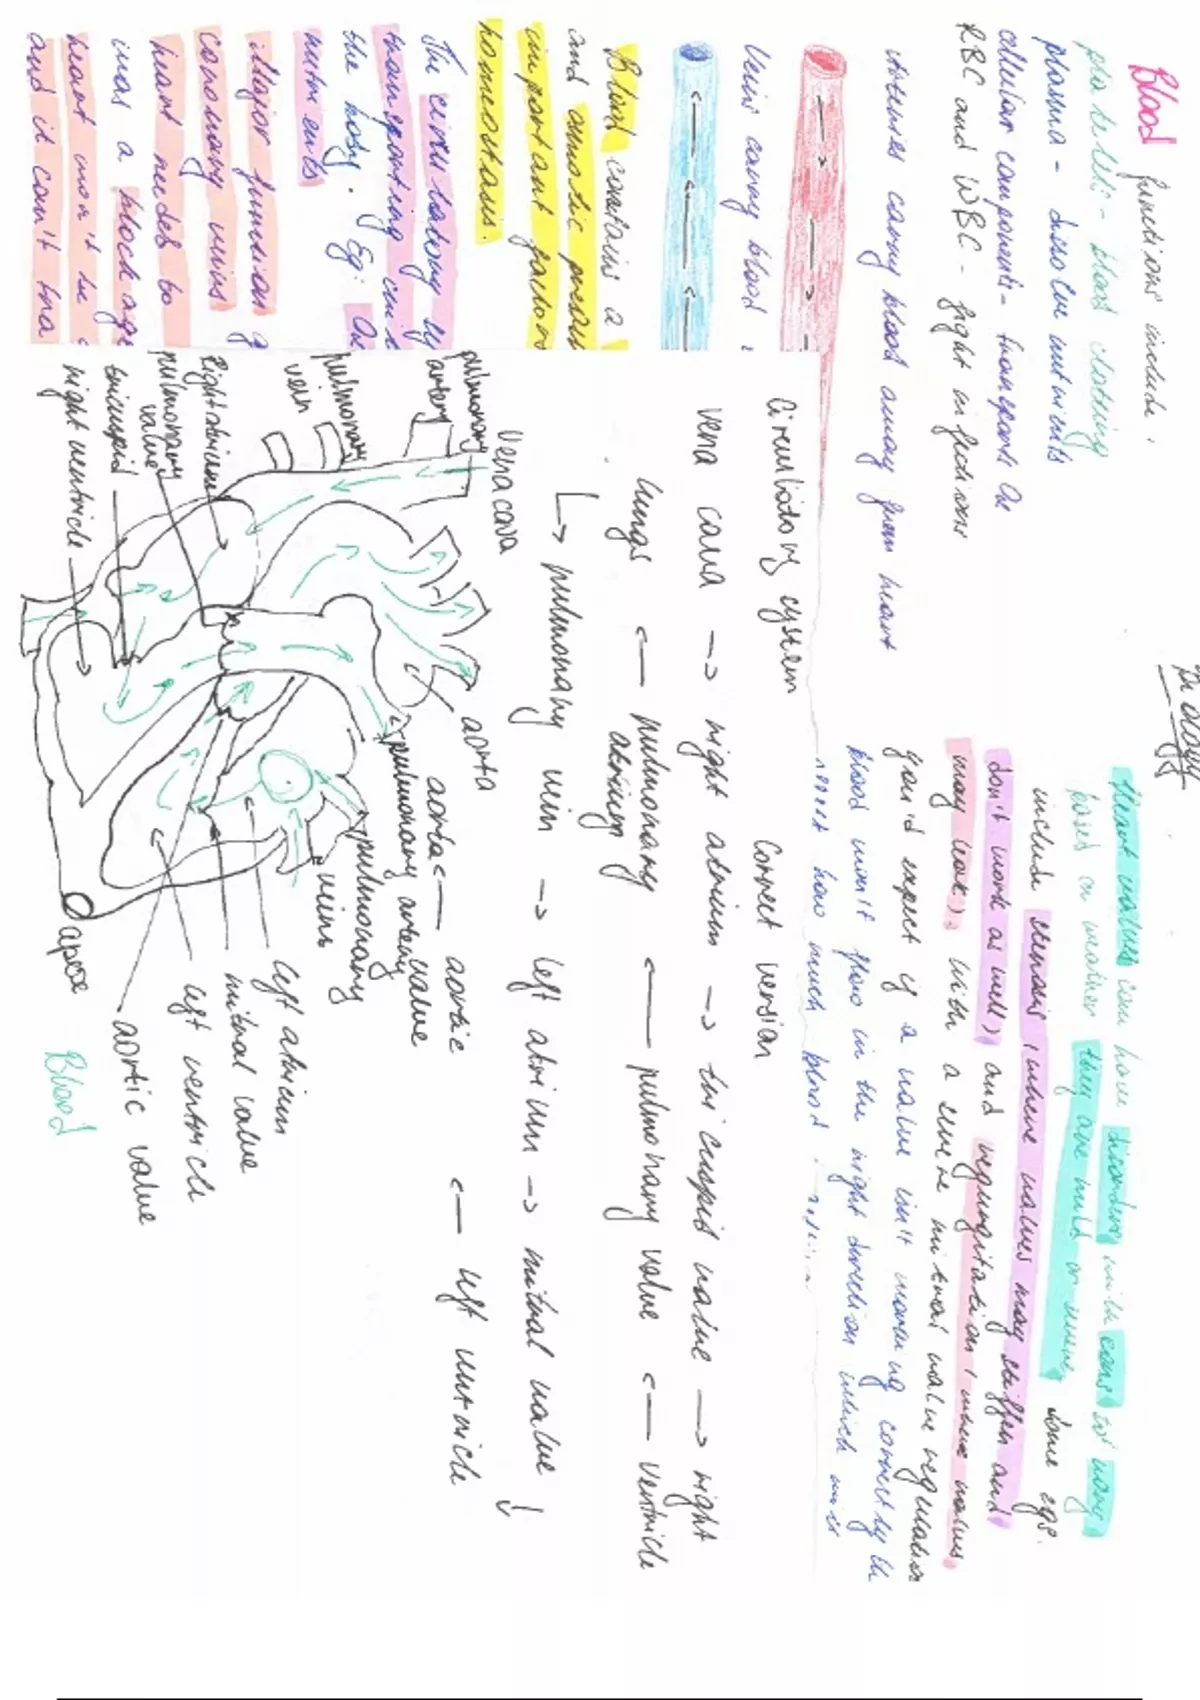 Biology
Blood functions include.
platelets - blood clotting
plasma - dissolve nutrients
cellular components - transports O2
RBC and WBC - fight infections
arteries carry blood away from heart
Veins carry blood
Blood contains a
and osmotic
important factor
homeostasis.
The circulatory sy
transporting
the body. Eg:
nutrients
Major function
coronary veins
heart needs to
was a blockage
heart won't be
and it can't
Heart valves can have disorders with
based on weather they are mild or severe. Some egs.
include senosis (where valves may stiffen and
don't work as well) and regurgitation (where valves
may leak). With a severe mitral valve
you'd expect if a valve isn't moving correctly
blood won't flow in the right direction which
how much blood
Circulatory system Correct version
vena cava → right atrium → tricuspid valve → right
lungs ← pulmonary ← pulmonary valve ← ventricle
↳ pulmonary vein → left atrium → mitral valve ↓
aorta ← aortic valve ← left ventricle
pulmonary artery
pulmonary vein
Right atrium
pulmonary valve
tricuspid
right ventricle
Vena cava
aorta
pulmonary artery
pulmonary veins
left atrium
mitral valve
left ventricle
aortic valve
apex
Blood